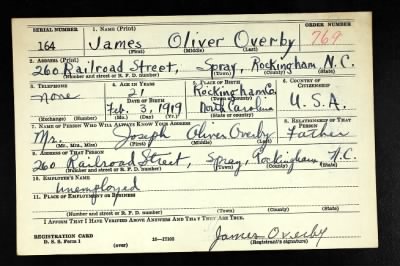 SERIAL NUMBER 1. NAME (Print) ORDER NUMBER
164 James Oliver Overby 769
(First) (Middle) (Last)
2. ADDRESS (Print)
260 Railroad Street, Spray, Rockingham, N.C.
(Number and street or R. F. D. number) (Town) (County) (State)
3. TELEPHONE 4. AGE IN YEARS 5. PLACE OF BIRTH 6. COUNTRY OF CITIZENSHIP
none 21 Rockingham Co. U.S.A.
DATE OF BIRTH (Town or county)
Feb. 3, 1919 North Carolina
(Exchange) (Number) (Mo.) (Day) (Yr.) (State or country)
7. NAME OF PERSON WHO WILL ALWAYS KNOW YOUR ADDRESS 8. RELATIONSHIP OF THAT PERSON
Mr. Joseph Oliver Overby Father
(Mr., Mrs., Miss) (First) (Middle) (Last)
9. ADDRESS OF THAT PERSON
260 Railroad Street, Spray, Rockingham, N.C.
(Number and street or R. F. D. number) (Town) (County) (State)
10. EMPLOYER'S NAME
Unemployed
11. PLACE OF EMPLOYMENT OR BUSINESS
(Number and street or R. F. D. number) (Town) (County) (State)
I AFFIRM THAT I HAVE VERIFIED ABOVE ANSWERS AND THAT THEY ARE TRUE.
REGISTRATION CARD James Overby
D. S. S. Form 1 (over) 16—17105 (Registrant's signature)